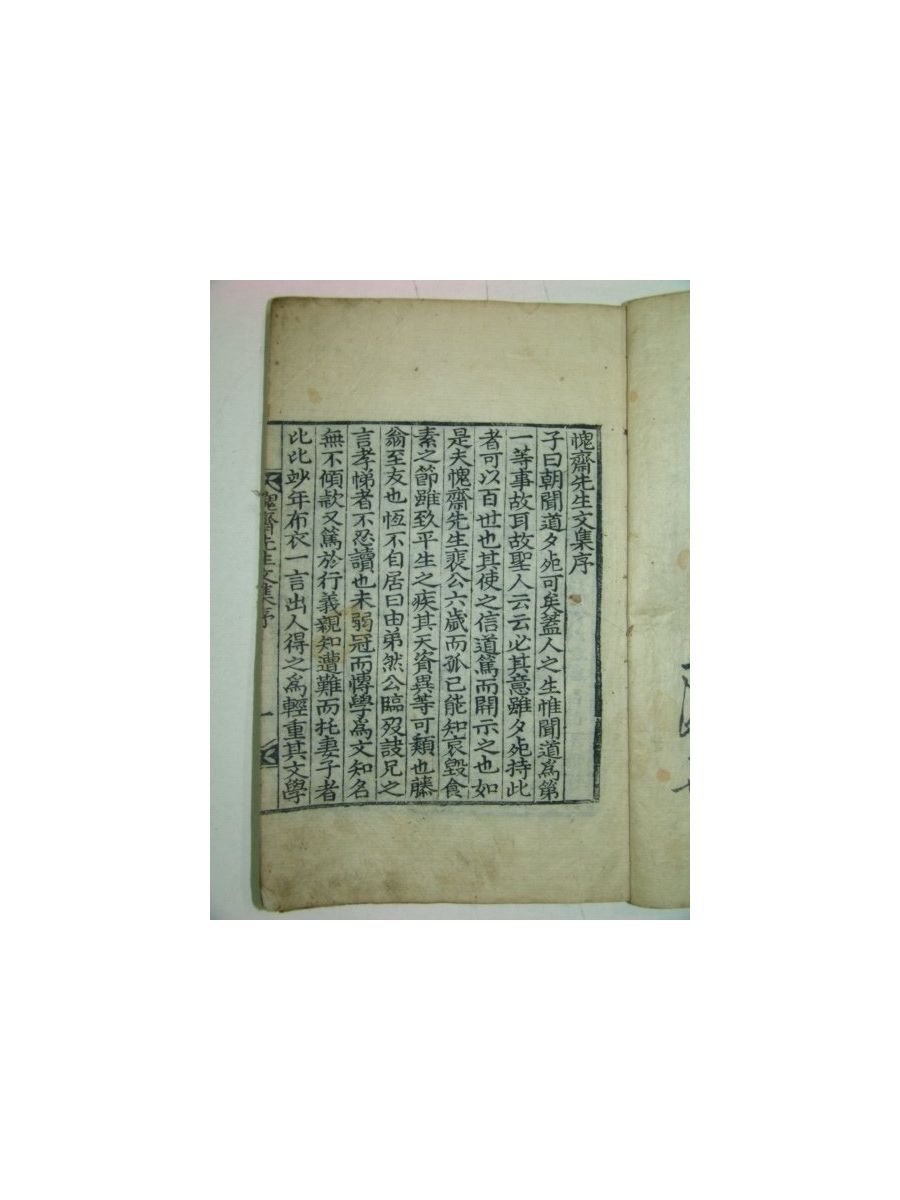 愧齋先生文集序
子曰朝聞道夕死可矣蓋人之生惟聞道爲第
一等事故耳故聖人云云必其意雖夕死持此
者可以百世也其使之信道篤而開示之也如
是夫愧齋先生裵公六歲而孤已能知哀毁食
素之節雖致平生之疾其天資異等可類也藤
翁至友也恆不自居曰由弟然公臨歿詖兄之
言孝悌者不忍讀也未弱冠而慱學爲文知名
無不傾款又篤於行義親知遭難而托妻子者
比比妙年布衣一言出人得之爲輕重其文學
愧齋先生文集序
一